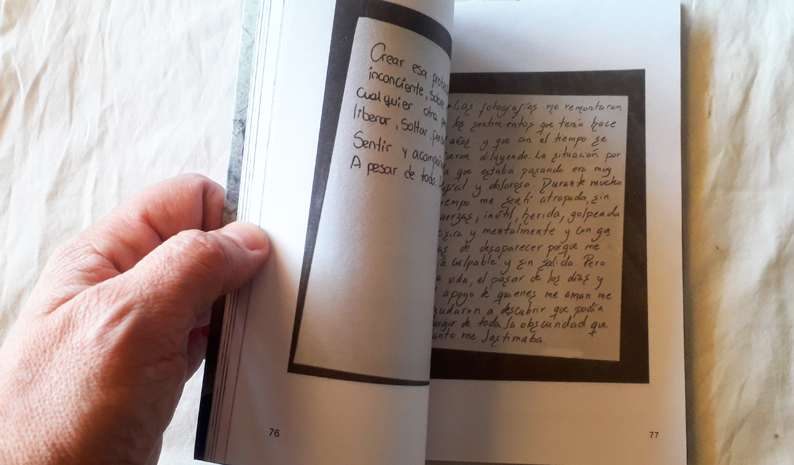 Crear esa
inconciente, Sobre
cualquier otra
liberar, Soltar,
Sentir y
A pesar de todo
Las fotografías me remontaron
los sentimientos que tenía hace
años y que con el tiempo se
diluyendo. La situación por
que estaba pasando era muy
y dolorosa. Durante mucho
me sentí atrapada, sin
inútil, herida, golpeada
y mentalmente y con ga
de desaparecer porque me
culpable y sin salida. Pero
vida, el pasar de los días y
apoyo de quienes me aman me
a descubrir que podía
de toda la obscuridad que
me lastimaba.
76
77